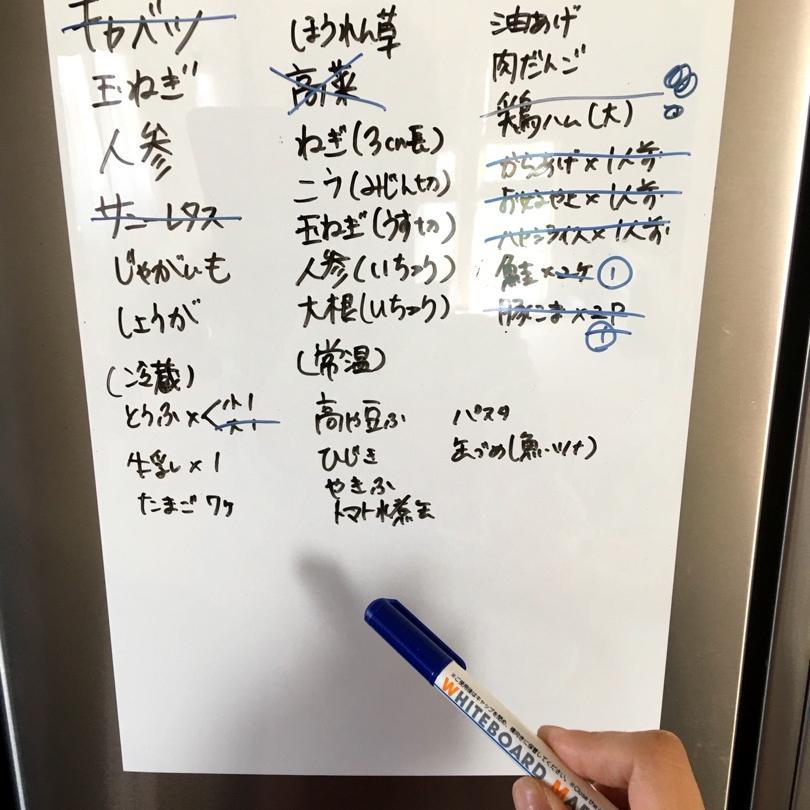 キャベツ
玉ねぎ
人参
サニーレタス
じゃがいも
しょうが
(冷蔵)
とうふ×<小1
大1
牛乳×1
たまご 7ヶ
ほうれん草
高菜
ねぎ(3cm長)
こう(みじん切)
玉ねぎ(うす切)
人参(いちょう)
大根(いちょう)
(常温)
高や豆ふ
ひじき
やきふ
トマト水煮缶
油あげ
肉だんご
鶏ハム(大)
からあげ×1人前
お好みやき×1人前
ハヤシライス×1人前
鮭×2ヶ ①
豚こま×2P
①
パスタ
缶づめ(魚・ツナ)
WHITEBOARD MA